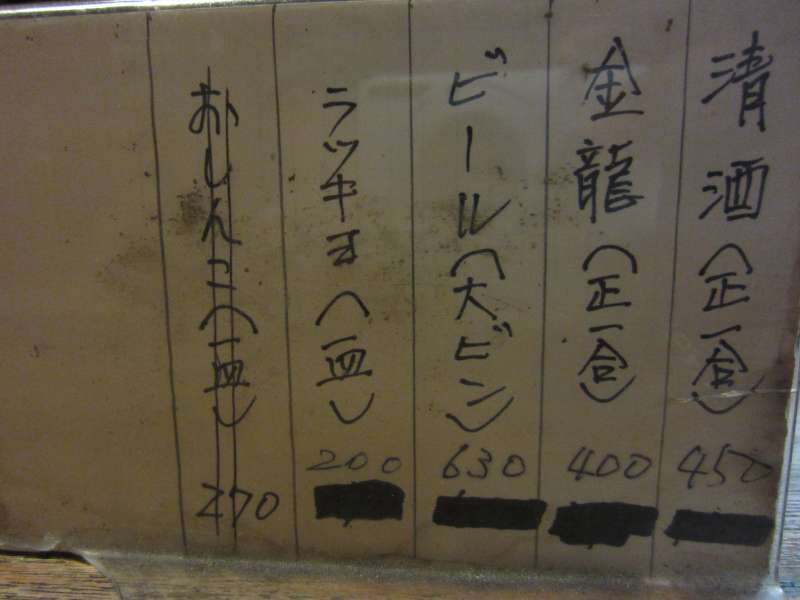 清酒(正一合)450
金龍(正一合)400
ビール(大ビン)630
ラッキョ(一皿)200
おしんこ(一皿)270